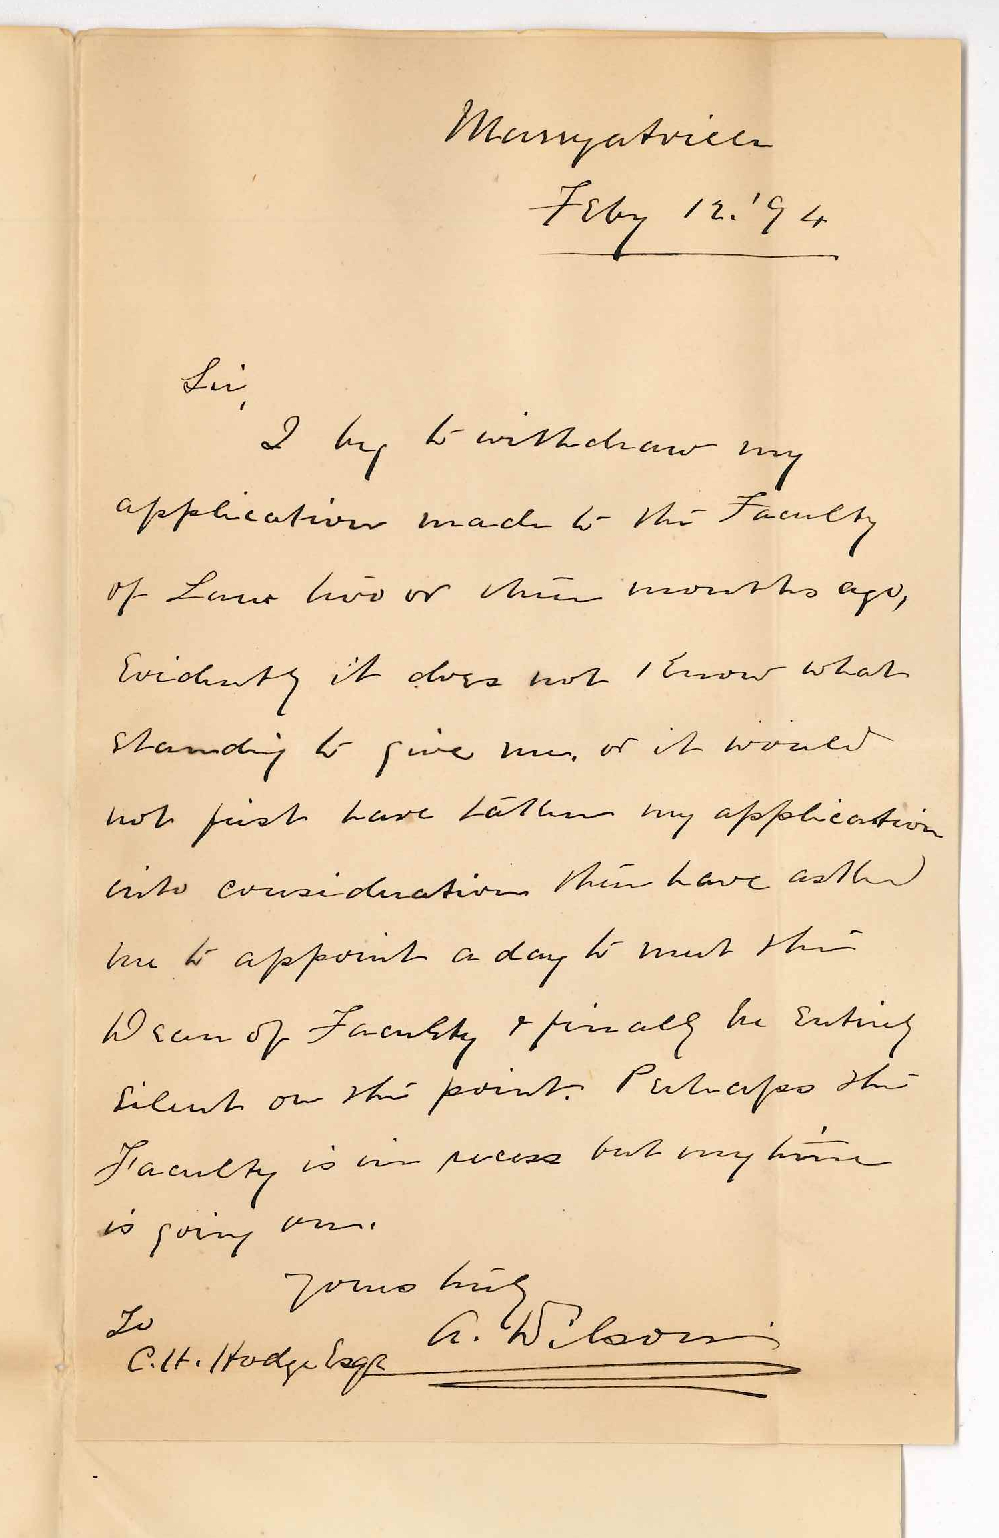 Marryatville
Feby 12. '94
Sir,
I beg to withdraw my
application made to the Faculty
of Laws two or three months ago,
Evidently it does not know what
standing to give me. or it would
not first have taken my application
into consideration then have asked
me to appoint a day to meet the
Dean of Faculty & finally be entirely
silent on the point. Perhaps the
Faculty is in recess but my time
is going on.
Yours truly
A. Wilson
To
C.H. Hodge Esqr